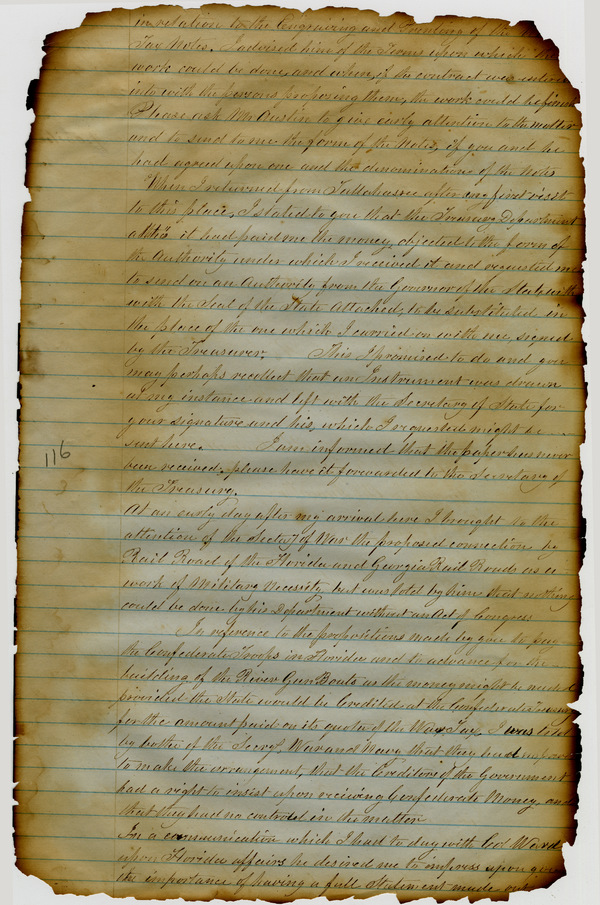 in relation to the Engraving and Printing of the
Tax Notes. I advised him of the Terms upon which the
work could be done, and when, if the contract was entered
into with the persons proposing them, the work could be finis
Please ask Mr Austin to give early attention to the matter
and to send to me the form of the Notes, if you and he
had agreed upon one and the denomination of the Notes
When I returned from Tallahassee after my first visit
to this place, I stated to you that the Treasury Department
altho' it had paid me the money, objected to the form of
the Authority under which I received it and requested me
to send on an Authority from the Governor of the State with
with the Seal of the State Attached, to be substituted in
the place of the one which I carried on with me, signed
by the Treasurer. This I promised to do and you
may perhaps recollect that an Instrument was drawn
at my instance and left with the Secretary of State for
your signature and his, which I requested might be
sent here. I am informed that the paper has never
been received, please have it forwarded to the Secretary of
116
the Treasury.
At an early day after my arrival here I brought to the
attention of the Secty of War the proposed connection by
Rail Road of the Florida and Georgia Rail Roads as a
work of Military Necessity, but was told by him that nothing
could be done by his Department without an Act of Congress
In reference to the propositions made by you to pay
the Confederate Troops in Florida and to advance for the
building of the River Gun Boats as the money might be needed
provided the State would be Credited at the Confederate Treasury
for the amount paid on its quota of the War Tax, I was told
by both of the Secrys, War and Navy that they had no power
to make the arrangement, that the Creditors of the Government
had a right to insist upon receiving Confederate Money, and
that they had no control in the matter
In a communication which I had to day with Col Ward
upon Florida affairs he desired me to impress upon you
the importance of having a full Statement made out